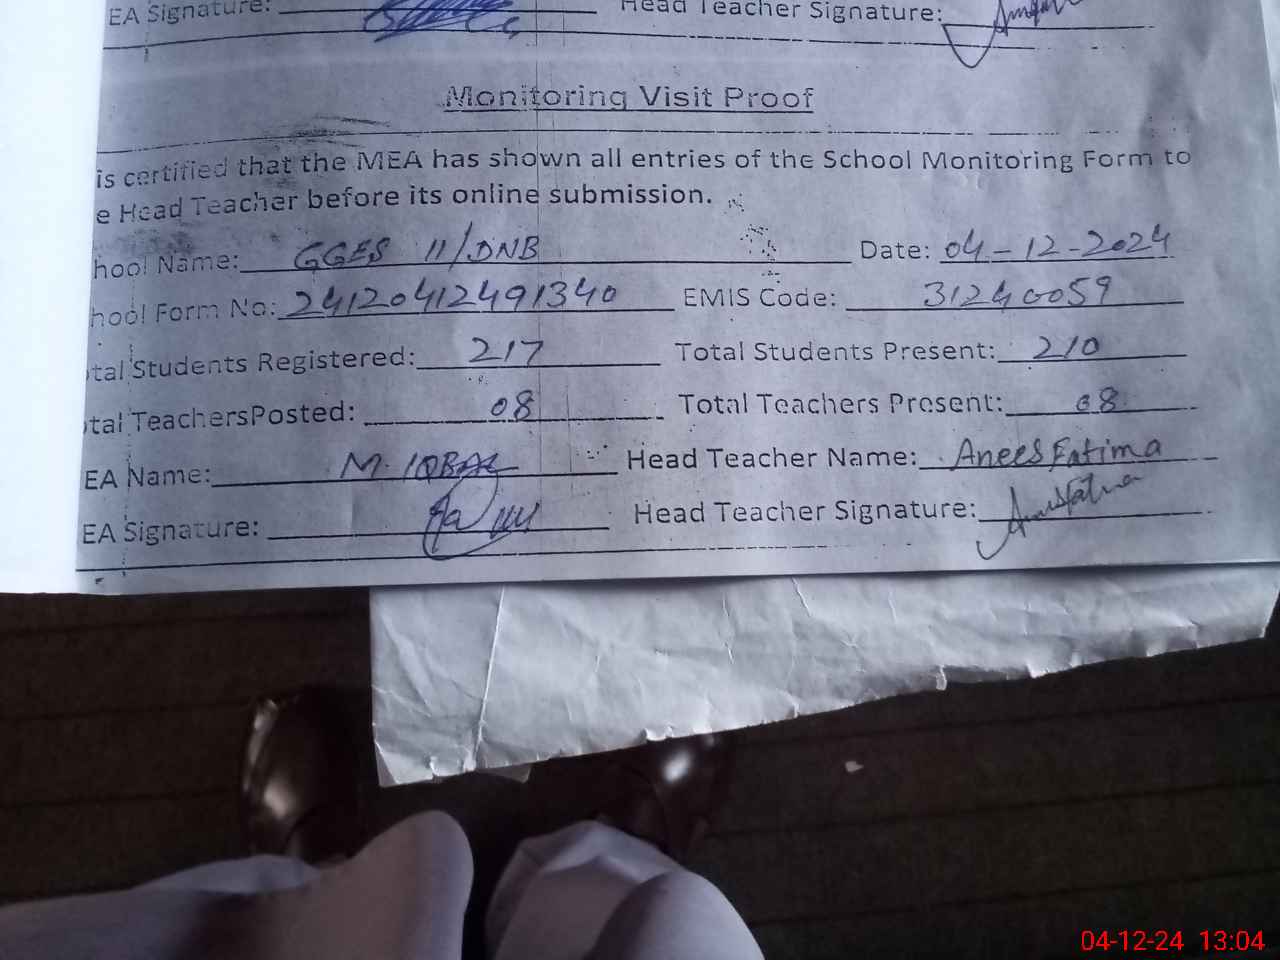 EA Signature: Head Teacher Signature:
Monitoring Visit Proof
is certified that the MEA has shown all entries of the School Monitoring Form to
e Head Teacher before its online submission.
hool Name: GGES 11/DNB Date: 04-12-2024
hool Form No: 24120412491340 EMIS Code: 31240059
tal Students Registered: 217 Total Students Present: 210
tal TeachersPosted: 08 Total Teachers Present: 08
EA Name: M. IQBAL Head Teacher Name: Anees Fatima
EA Signature: Head Teacher Signature:
04-12-24 13:04